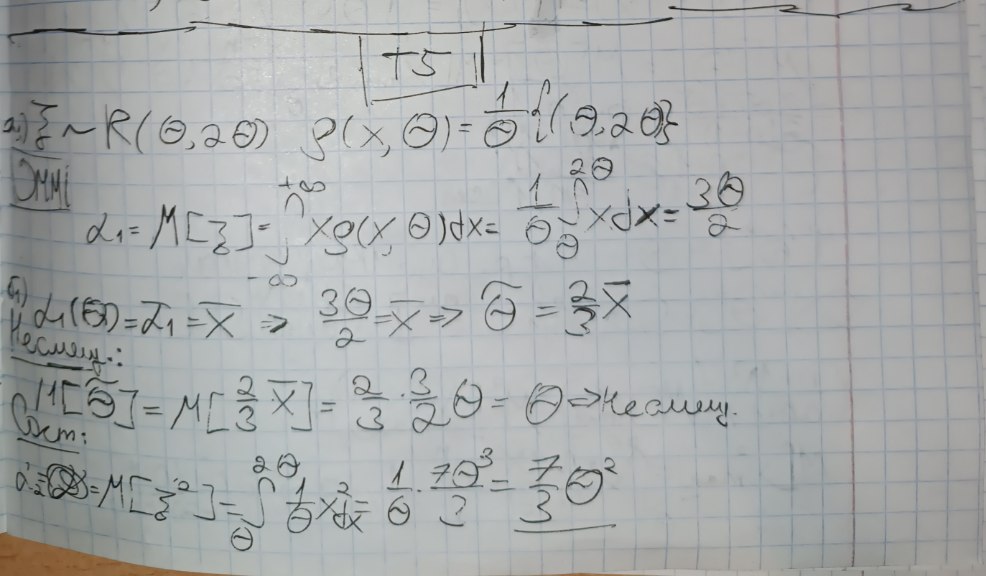 T5
а) ξ ~ R(Θ, 2Θ) ρ(x, Θ) = 1/Θ {(Θ, 2Θ)}
ОММ
α₁ = M[ξ] = ∫_{-∞}^{+∞} xρ(x, Θ)dx = 1/Θ ∫_Θ^{2Θ} x dx = 3Θ/2
б) α₁(Θ) = α̃₁ = x̄ ⇒ 3Θ/2 = x̄ ⇒ Θ̃ = 2/3 x̄
Несмещ.:
M[Θ̃] = M[2/3 x̄] = 2/3 · 3/2 Θ = Θ ⇒ Несмещ.
Сост:
α₂ = M[ξ²] = ∫_Θ^{2Θ} 1/Θ x² dx = 1/Θ · 7Θ³/3 = 7/3 Θ²